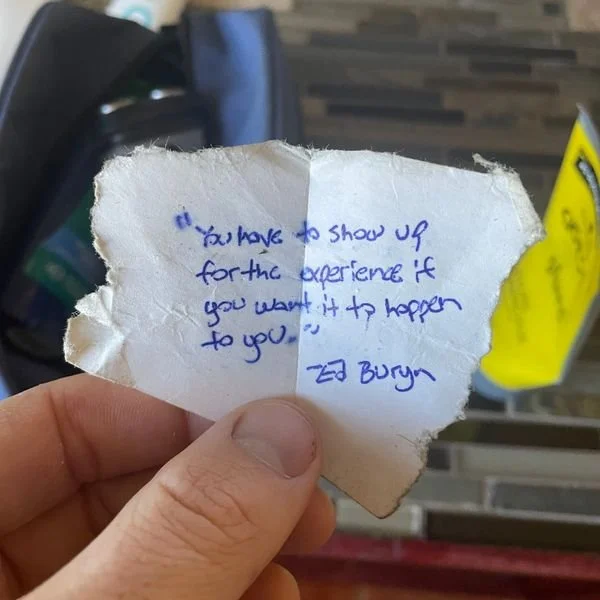 "You have to show up
for the experience if
you want it to happen
to you."
Ed Buryn